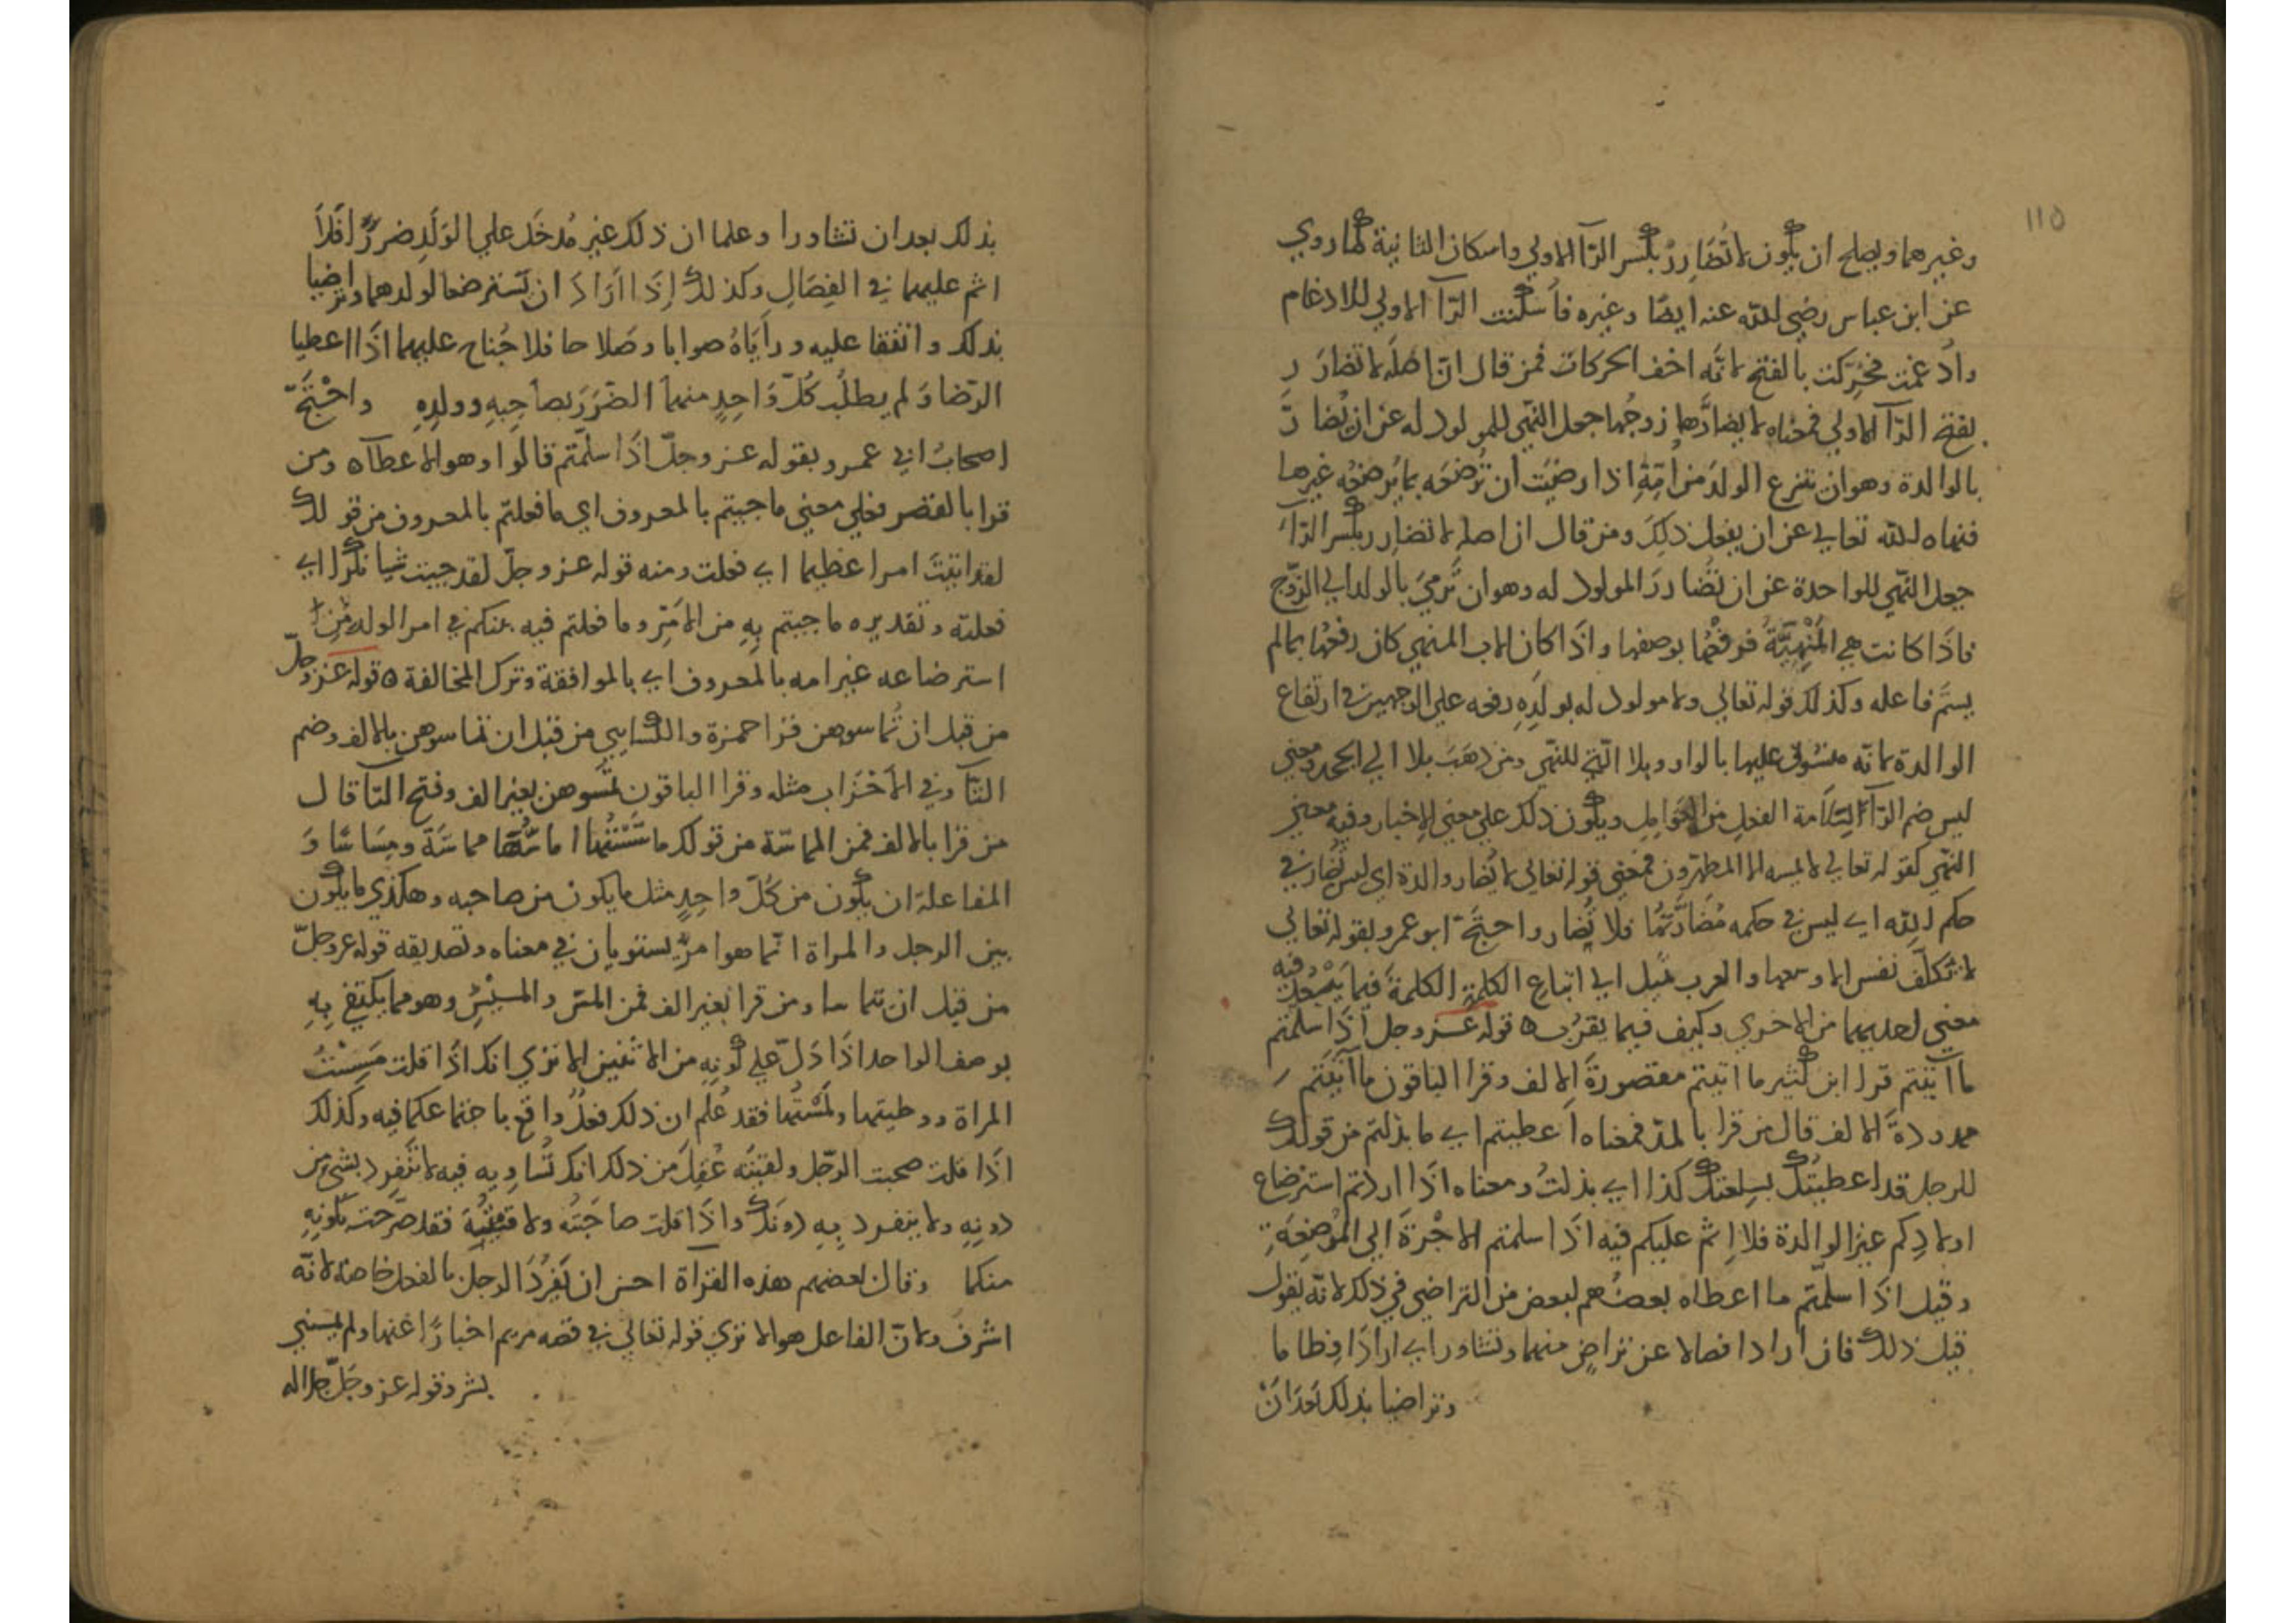 115
وغيرهما ويصلح ان يكون لا تُضَارِرْ بكسر الرّآ الاولي واسكان الثانية كما روي
عن ابن عباس رضي الله عنه ايضًا وغيره فاسكنت الرّآ الاولي للادغام
وادغمت فحُرِّكت بالفتح لانّه اخف الحركات فمن قال انّ اصله لا تضارَر
بفتح الرّآ الاولي فمعناه لا يضارّها زوجُها جعل النّهي للمولود له عن ان يُضارّ
بالوالدة وهو ان ينزع الولدَ من اُمّهِ اذا رضيَت ان تُرضعَه بما يُرضعُه غيرها
فنهاه الله تعالي عن ان يفعل ذلِكَ ومن قال ان اصله لا تضارِر بكسر الرّآ
جعل النّهي للواحدة عن ان تُضَارِرَ المولود له وهو ان تَرميَ بالولد الي الزّوج
فاذَا كانت هي المَنْهِيَّةُ فرفعُها بوصفها واذَا كان الاب المنهي كان رفعُها بما لم
يسَمّ فاعله وكذلك قوله تعالي ولا مولود له بولَدِهِ رفعه علي الوجهين في ارتفاع
الوالدة لانّه منسُوق عليها بالواو وبلا الّتي للنّهي ومن ذهَبَ بلا الي الجحد ومعني
ليس ضم الرّآ لسَلَامة الفعل من العَوَامِل ويكُون ذلك علي معني الاِخبار وفيه معني
النّهي كقوله تعالي لا يمسه الا المطهّرون فمعني قوله تعالي لا تُضار والدة اي ليس تُضارّ في
حكم اللهِ اي ليس في حكمه مُضَارَّتُهَا فلا تُضار واحتجّ ابو عمرو بقوله تعالي
لا تُكلَّف نفس الا وسعها والعرب تميل الي اتباع الكلمةِ الكلمةَ فيما يَبْعُدُ فيه
معني احديهما من الاخري وكيف فيما يقرُب ه قوله عز وجل اذَا سلمتم
ما اتَيْتم قرا ابن كثير ما اتيتم مقصورةَ الالف وقرا الباقون ما آتَيْتم
ممدودةَ الالف قال من قرا بالمدّ فمعناه اعطيتم اي ما بذلتم من قولك
للرجل قد اعطيتُك بسِلعتك كذا اي بذلتُ ومعناه اذَا اردتم استرضاع
اولادِكم غير الوالدة فلا اِثم عليكم فيه اذَا سلمتم الاُجْرَةَ الي المُرْضِعَةِ
وقيل اذَا سلّمتم ما اعطاه بعضُهم لبعض من التراضي في ذلك لانّه يقول
قبل ذلك فان ارادا فصالا عن تراضٍ منهما وتشاور اي ارادَا فِطاما
وتراضيا بذلك بَعدَ اَنْ
بذلك بعد ان تشاورا وعلما ان ذلك غير مُدخَل علي الوَلَدِ ضررًا فَلَا
اثم عليهما في الفِصَالِ وكذلك اِذَا ارَادَ ان يَسْترضعا لولدهما وتراضيا
بذلك واتّفقا عليه ورأيَاهُ صوابا وصَلاحا فلا جُناح عليهما اذَا اعطيا
الرّضا ولم يطلُب كُلّ وَاحِدٍ منهما الضّرَرَ بصاحِبِهِ وولدِهِ واحْتَجّ
اصحابُ ابي عمرو بقوله عز وجلّ اذَا سلمّتم قالوا وهو الاعطآه ومن
قرا بالقصر فعلي معني ما جيتم بالمعروف اي ما فعلتم بالمعروف من قولك
لقد اتيتَ امرا عظيما اي فعلت ومنه قوله عز وجلّ لقد جيت شيا نُكْرًا اي
فعلته وتقديره ما جيتم بِهِ من الاَمرِ وما فعلتم فيه بينكم في امر الولد مِنْ
استرضاعه غير امه بالمعروف اي بالموافقة وترك المخالفة ه قوله عز وجلّ
من قبل ان تُماسوهن قرا حمزة والكسايي من قبل ان تماسوهن بالالف وضم
التآ وفي الاَحْزاب مثله وقرا الباقون تمَسّوهن بغير الف وفتح التآ قال
من قرا بالالف فمن المماسّة من قولك ماسَسْتُها اماسُّهَا مماسَّةً ومِسَاسًا وَ
المفاعلة ان يكُون من كُلّ واحِدٍ مثل ما يكون من صاحبه وهكذي ما يكُون
بين الرجل والمراة انّما هو امرٌ يستويان في معناه وتصديقه قوله عز وجلّ
من قبل ان يتماسا ومن قرا بغير الف فمن المسّ والمَسِيْسِ وهو مما يكتفي بِهِ
بوصف الواحد اذَا دَلّ علي كونِهِ من الاثنين الا تري انك اذَا قلت مَسِسْتُ
المراة ووطيتها ولمَسْتُها فقد عُلم ان ذلك فعلٌ واقع باجتماعكما فيه وكذلك
اذَا قلت صحبت الرّجل ولقيتُه عُقِلَ من ذلك انك تُساوِيه فيه لا تَنْفرد بشيءٍ من
دونِهِ ولا ينفرد بِهِ دونَك واذَا قلت صاحَبْتُه ولاقَيْتُهُ فقد صرّحت بكونِهِ
منكما وقال بعضهم هذه القرآة احسن ان يُفْرَدَ الرجل بالفعل خاصة لانّه
اشرف ولانّ الفاعل هو الا تري قوله تعالي في قصه مريم اخبارًا عنها ولم يمسني
بشر وقوله عز وجَلّ